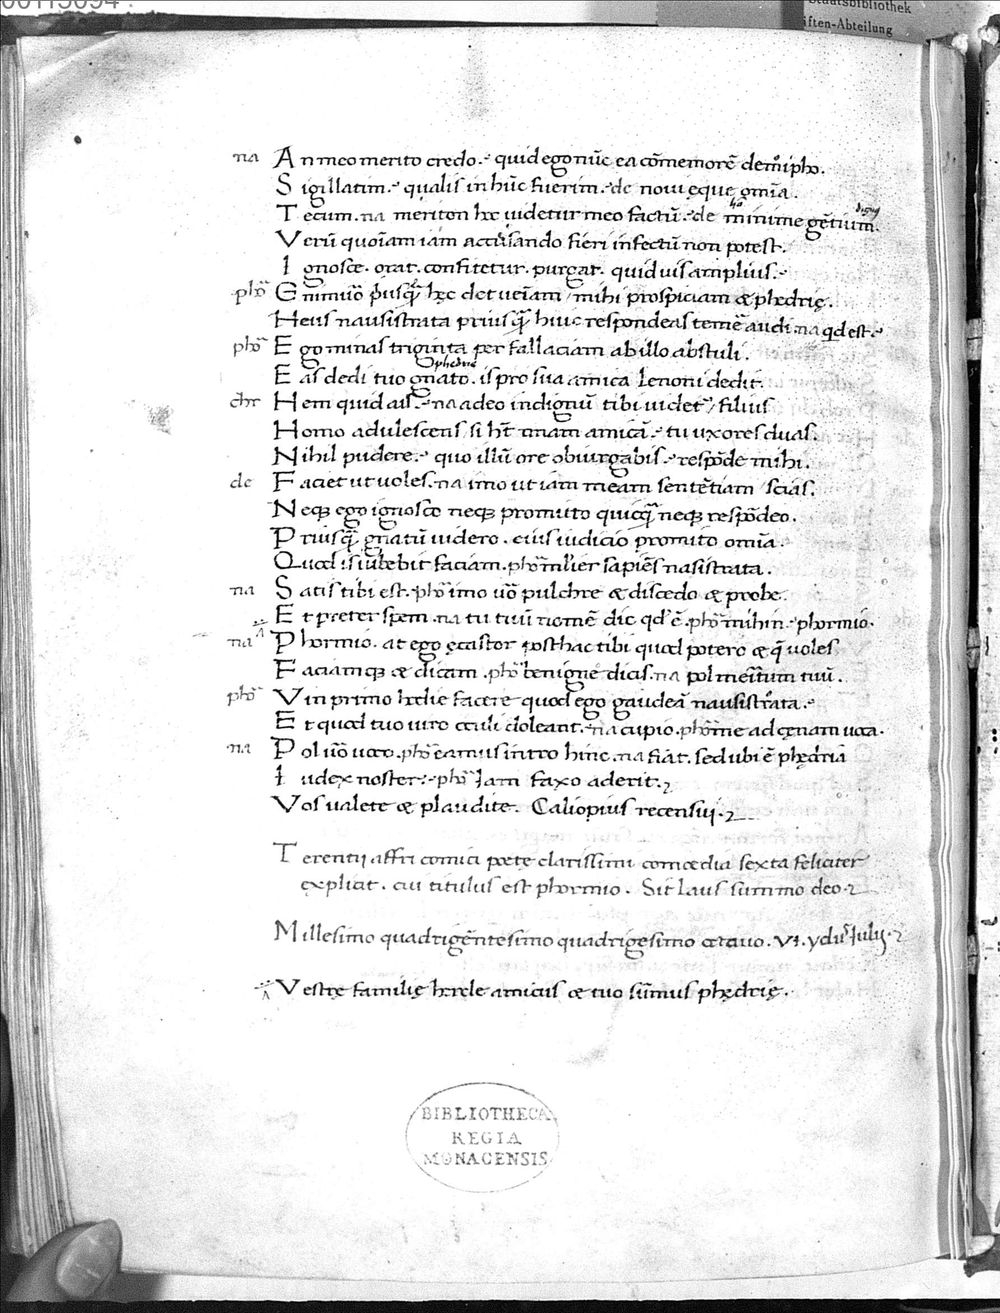 00113094
Staatsbibliothek
iften-Abteilung
na An meo merito credo. quid ego nũc ea cõmemorẽ demipho.
Sigillatim. qualis in hũc fuerim. de novi eque omĩa.
Tecum. na meriton hoc videtur meo factũ. de minime gẽtium.
Verũ quoĩam iam accusando fieri infectũ non potest.
Ignosce. orat. confitetur. purgat. quid vis amplius.
pho Enimvõ priusq̃ hęc det veiam mihi prospiciam & phedrię.
Heus nausistrata priusq̃ huic respondeas temẽ audi. na qd est.
pho Ego minas triginta per fallaciam ab illo abstuli.
phedrie
Eas dedi tuo gnato. is pro sua amica lenoni dedit.
chr Hem quid ais. na adeo indignũ tibi videt filius
Homo adulescens si ht̃ unam amicã. tu uxores duas.
Nihil pudere. quo illũ ore obiurgabis. respõde mihi.
de Faciet ut voles. na imo ut iam meam sentẽtiam scias.
Neq; ego ignosco neq; promitto quicq̃ neq; respõdeo.
Priusq̃ gnatũ videro. eius iudicio promitto omĩa.
Quod is iubebit faciam. pho mlier sapiẽs nasistrata.
na Satis tibi est. pho imo võ pulchre & discedo & probe.
Et preter spem. na tu tuũ nomẽ dic qd ẽ. pho mihin. phormio.
na Phormio. at ego ęcastor posthac tibi quod potero & q̃ voles
Faciamq; & dicam. pho benigne dicis. na pol meritum tuũ.
pho Vin primo hodie facere quod ego gaudeã nausistrata.
Et quod tuo viro oculi doleant. na cupio. pho me ad cęnam voca.
na Pol võ voco. pho eamus intro hinc. na fiat. sed ubi ẽ phędria
Iudex noster. pho Iam faxo aderit.
Vos valete & plaudite. Caliopius recensui.
Terentij affri comici poete clarissimi comoedia sexta feliciter
explicit. cui titulus est phormio. Sit laus summo deo.
Millesimo quadrigẽntesimo quadrigesimo octavo. VI. ydus Iulij.
Vestrę familię hercle amicus & tuo sũmus phędrię.
BIBLIOTHECA
REGIA
MONACENSIS